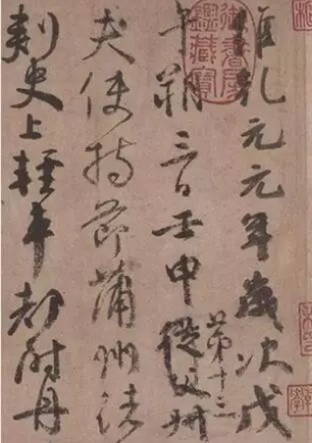 維乾元元年歲次戊
午朔三日壬申第十三從父
夫使持節蒲州諸
刺史上輕車都尉丹
御書房鑑藏寶